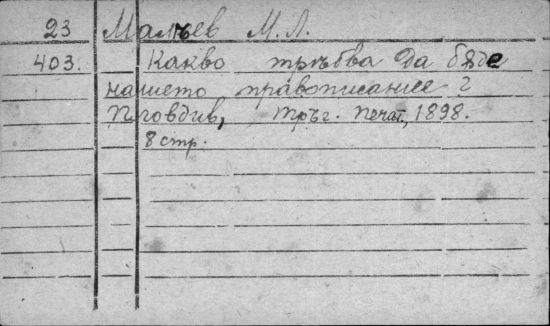 23 Малчев М. Л.
403. Какво трѣбва да бѫде
нашето правописание ?
Пловдив, Търг. печат., 1898.
8 стр.